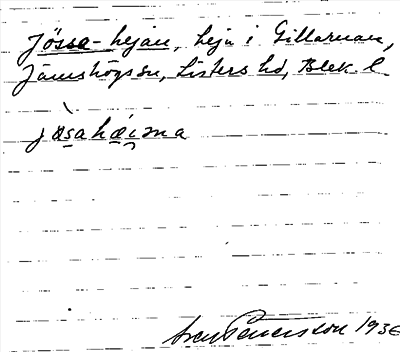 Jössa-hejan, heja i Gillaruan,
Jämshögs sn, Listers hd, Blek. l
jøsahæi̯ma
Sven Petersson 1936